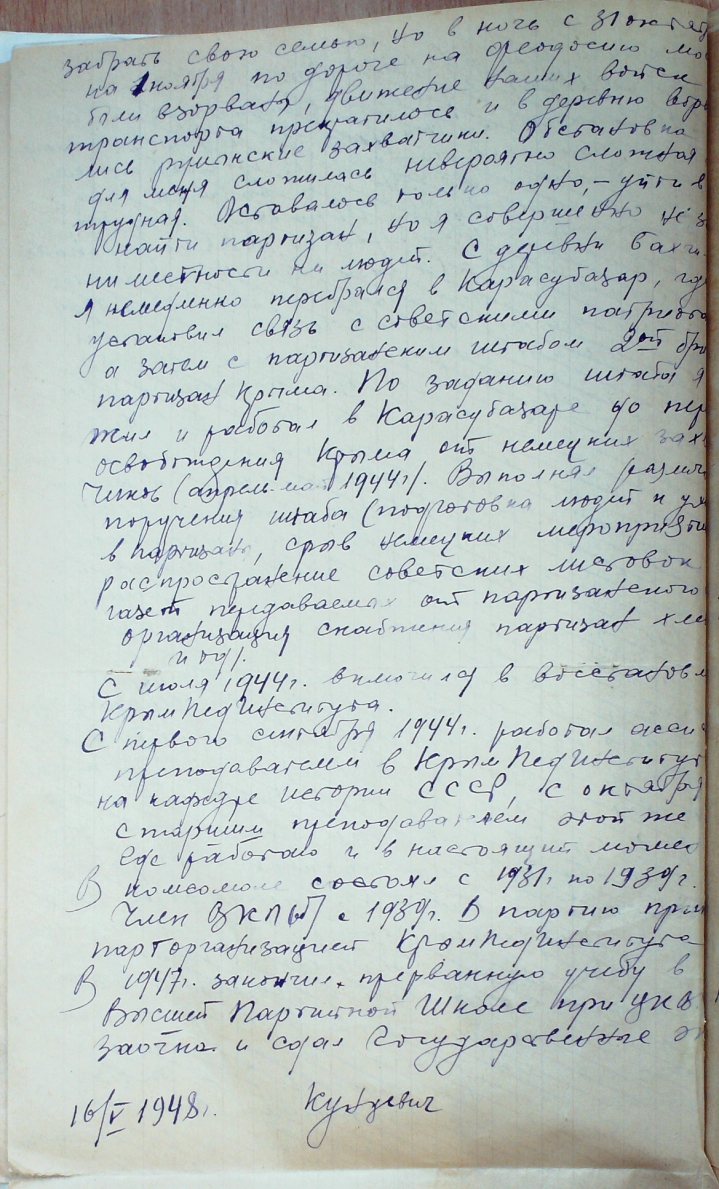 забрать свою семью, но в ночь с 31 октяб
на 1 ноября по дороге на Феодосию мос
были взорваны, движение наших войск
транспорта прекратилось и в деревню ворв
лись румынские захватчики. Обстановка
для меня сложилась невероятно сложная
трудная. Оставалось только одно, – уйти в
найти партизан, но я совершенно не з
ни местности ни людей. С деревни
я немедленно перебрался в Карасубазар, гд
установил связь с советскими патриота
а затем с партизанским штабом 2ой бри
партизан Крыма. По заданию штаба я
жил и работал в Карасубазаре до
освобождения Крыма от немецких зах
чиков (апрель-май 1944г). Выполнял различ
поручения штаба (подготовка людей к ух
в партизаны, срыв немецких мероприяти
распространение советских листовок
газет передаваемых от партизанского
организация снабжения партизан хле
и др).
С июля 1944г. включился в восстановл
КрымПединститута.
С первого сентября 1944г. работал асси
преподавателем в КрымПединститут
на кафедре истории СССР, с октября
старшим преподавателем этой же
где работаю и в настоящий момен
В комсомоле состоял с 1931г по 1939г.
Член ВКП(б) с 1939г. В партию прин
парторганизацией КрымПединститута
В 1947г. закончил прерванную учебу в
Высшей Партийной Школе при ЦК В
заочно и сдал Государственные эк
16/V 1948г. Кунцевич